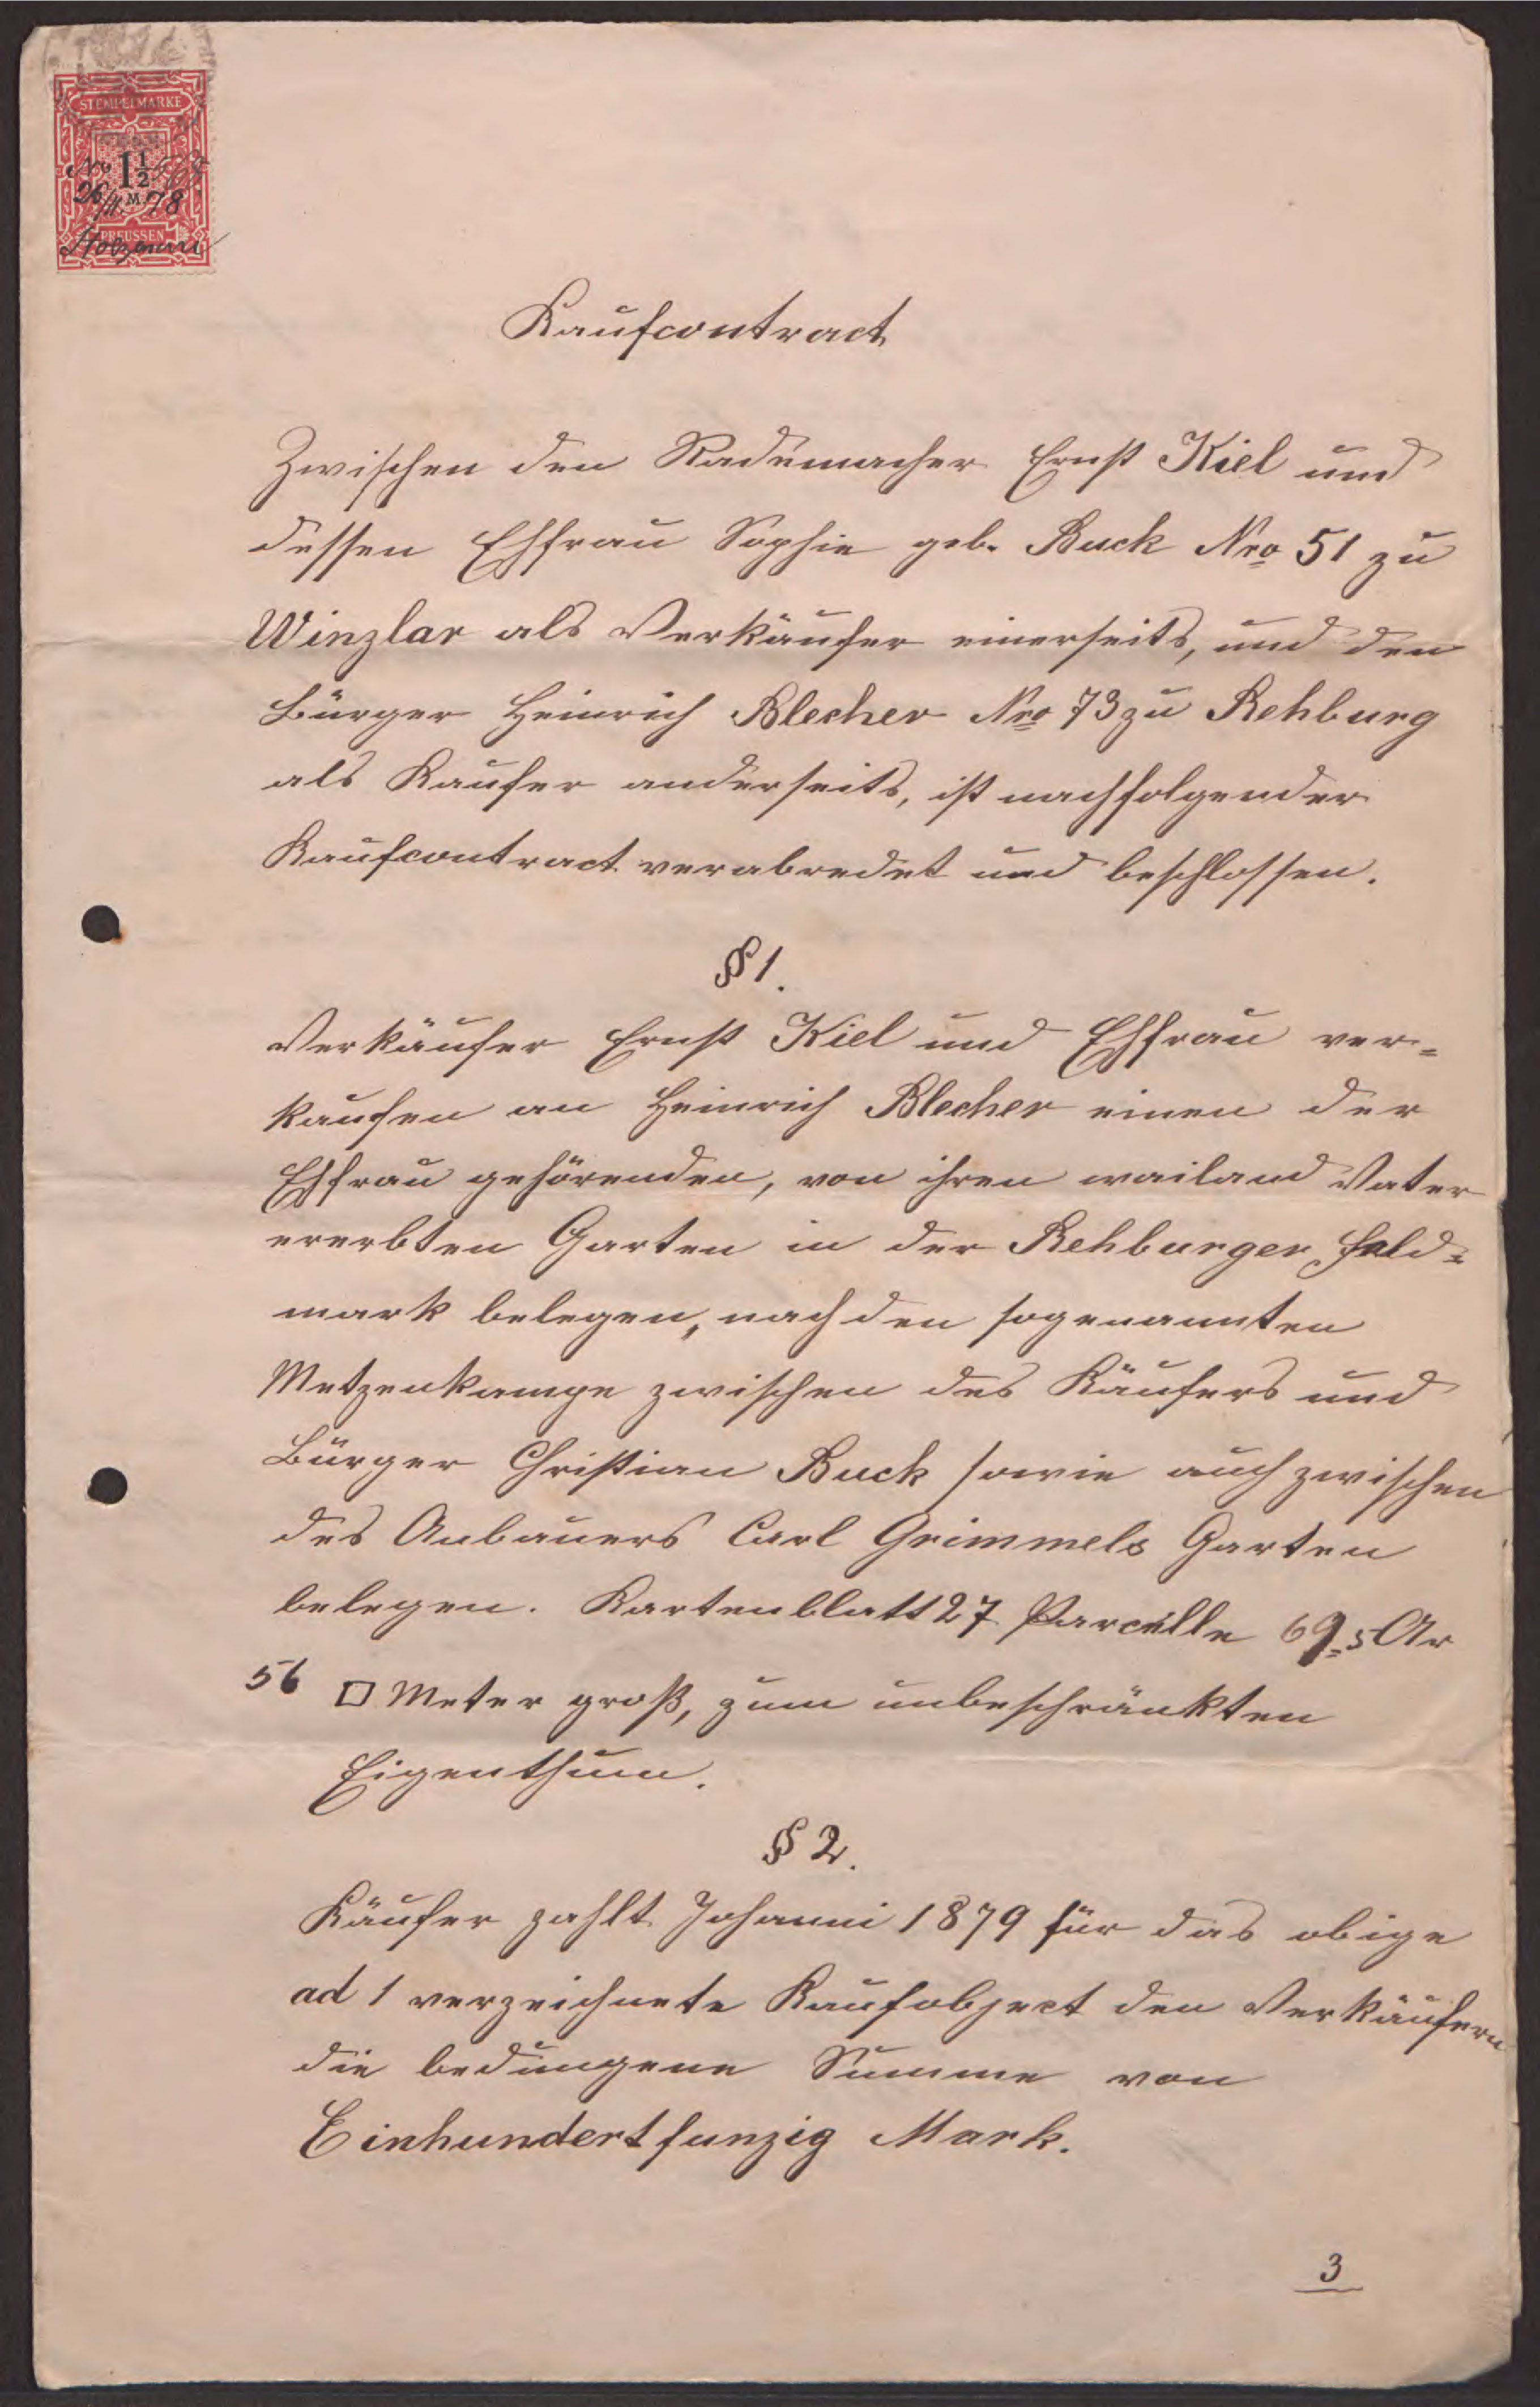 STEMPELMARKE
No 1½
26/11. M. 78
PREUSSEN
Kaufcontract
Zwischen den Rademacher Ernst Kiel und
dessen Ehfrau Sophie geb. Buck Nro 51 zu
Winzlar als Verkäufer einerseits, und den
Bürger Heinrich Blecher Nro 73 zu Rehburg
als Kaufer anderseits, ist nachfolgender
Kaufcontract verabredet und beschlossen.
§ 1.
Verkäufer Ernst Kiel und Ehfrau ver=
kaufen an Heinrich Blecher einen der
Ehfrau gehörenden, von ihren wailand Vater
ererbten Garten in der Rehburger Feld=
mark belegen, nach den sogenannten
Metzenkampe zwischen des Käufers und
Bürger Christian Buck sowie auch zwischen
des Anbauers Carl Grimmels Garten
belegen. Kartenblatt 27 Parcelle 69 = 5 Ar
56 □ Meter groß, zum unbeschränkten
Eigenthum.
§ 2.
Käufer zahlt Johanni 1879 für das obige
ad 1 verzeichnete Kaufobject den Verkäufern
die bedungene Summe von
Einhundertfunzig Mark.
3